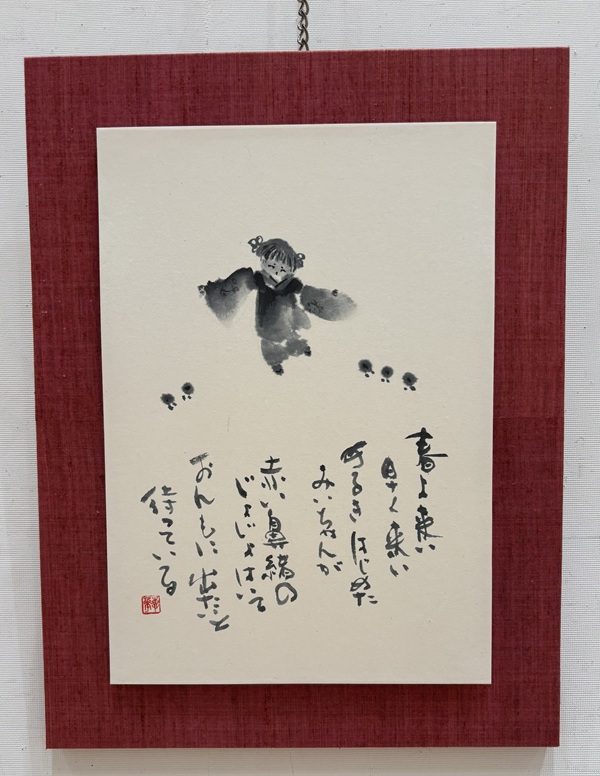 春よ来い
早く来い
あるきはじめた
みいちゃんが
赤い鼻緒の
じょじょはいて
おんもに出たいと
待っている